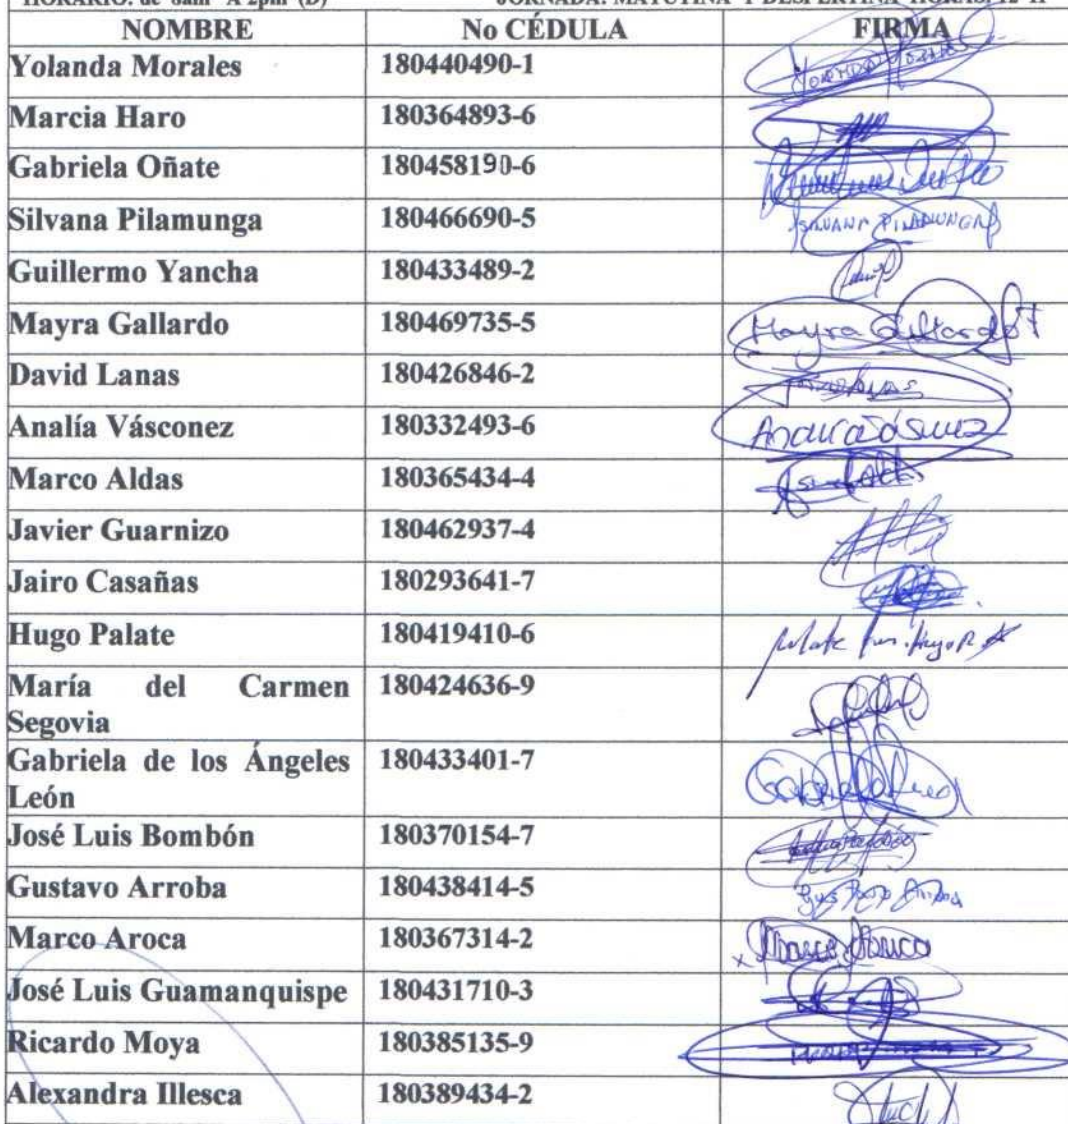 HORARIO: de 8am A 2pm (D) JORNADA: MATUTINA Y DESPERTINA HORAS: 12
NOMBRE No CÉDULA FIRMA
Yolanda Morales 180440490-1
Marcia Haro 180364893-6
Gabriela Oñate 180458190-6
Silvana Pilamunga 180466690-5 SILVANA PILAMUNGA
Guillermo Yancha 180433489-2
Mayra Gallardo 180469735-5 Mayra Gallardo F
David Lanas 180426846-2
Analía Vásconez 180332493-6
Marco Aldas 180365434-4
Javier Guarnizo 180462937-4
Jairo Casañas 180293641-7
Hugo Palate 180419410-6
María del Carmen
Segovia 180424636-9
Gabriela de los Ángeles
León 180433401-7
José Luis Bombón 180370154-7
Gustavo Arroba 180438414-5
Marco Aroca 180367314-2
José Luis Guamanquispe 180431710-3
Ricardo Moya 180385135-9
Alexandra Illesca 180389434-2